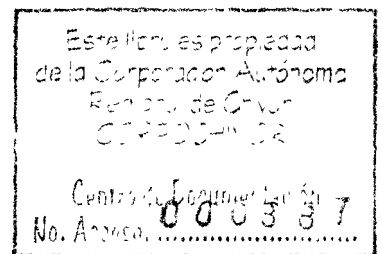 Este libro es propiedad
de la Corporación Autónoma
Regional de
Centro de Documentación
No. Acceso. 000387